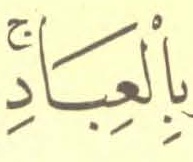 بِالْعِبَادِ ۚ